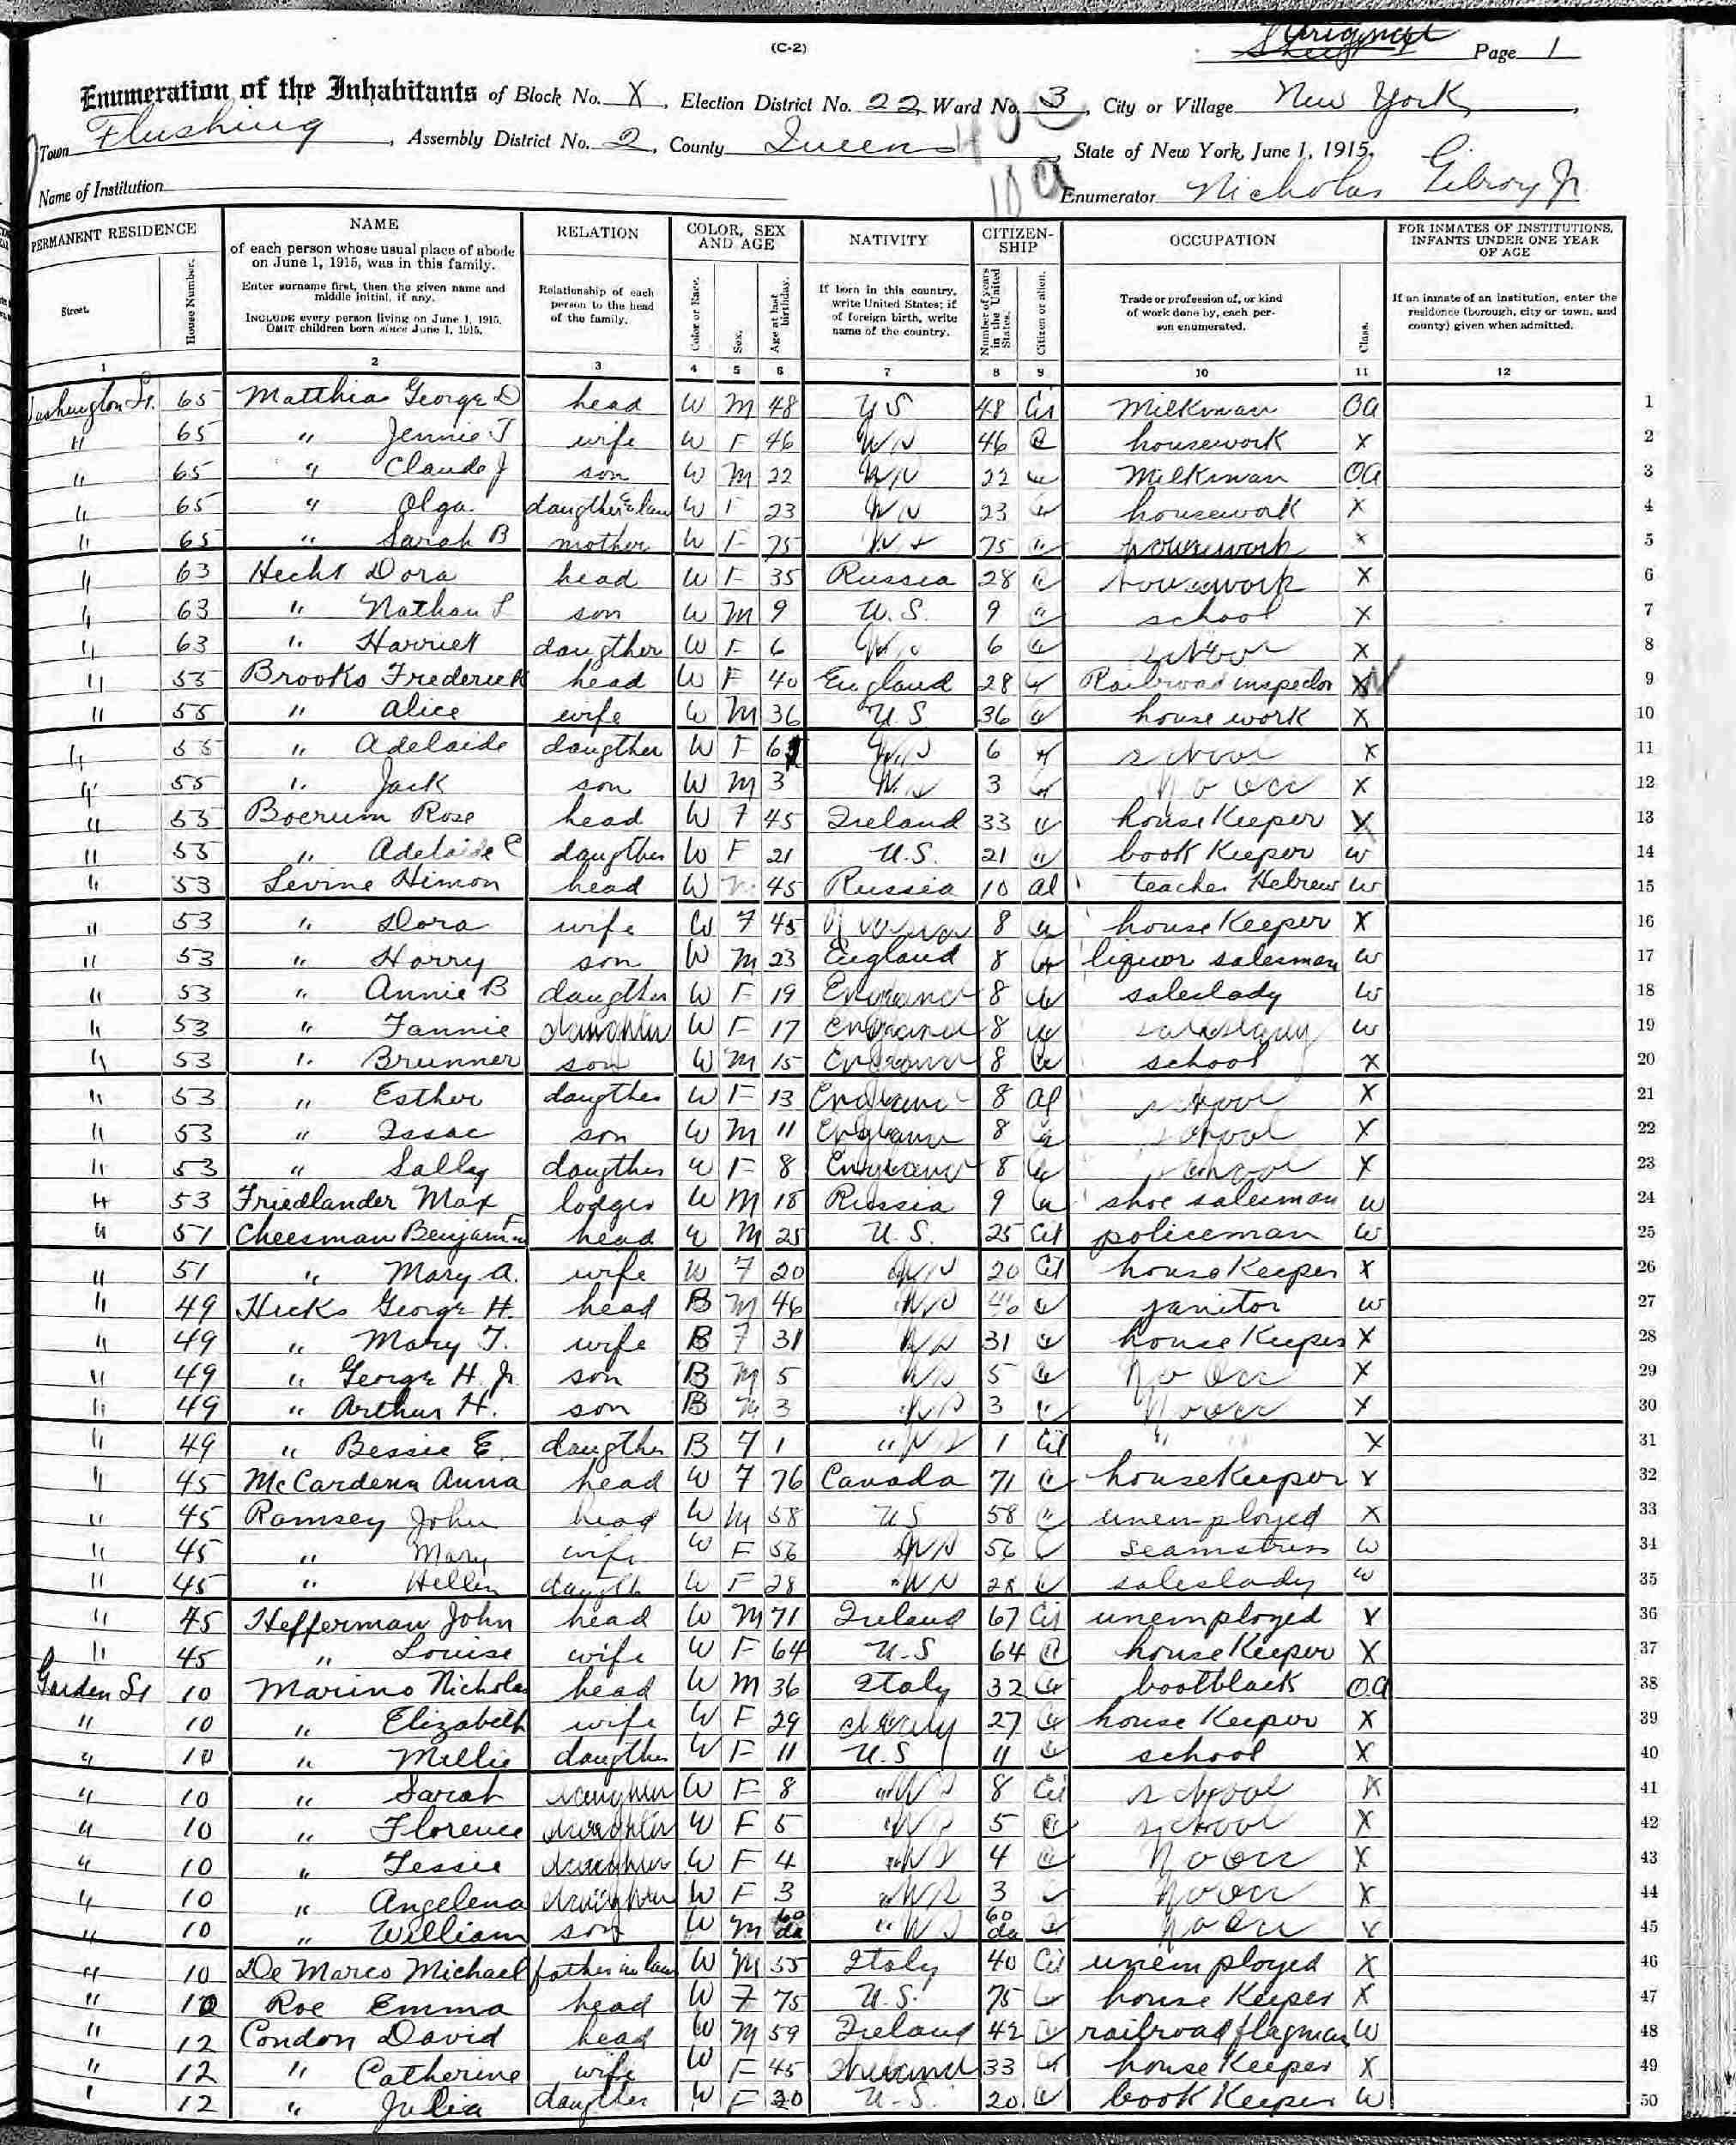 (C-2)
Original
Page 1
Enumeration of the Inhabitants of Block No. X, Election District No. 22 Ward No. 3, City or Village New York,
Town Flushing, Assembly District No. 2, County Queens, State of New York, June 1, 1915.
Name of Institution
Enumerator Nicholas Gilroy Jr
PERMANENT RESIDENCE NAME RELATION COLOR, SEX AND AGE NATIVITY CITIZENSHIP OCCUPATION FOR INMATES OF INSTITUTIONS, INFANTS UNDER ONE YEAR OF AGE
Street. House Number. of each person whose usual place of abode on June 1, 1915, was in this family.
Enter surname first, then the given name and middle initial, if any.
INCLUDE every person living on June 1, 1915. OMIT children born since June 1, 1915.
Relationship of each person to the head of the family.
Color or Race. Sex. Age at last birthday.
If born in this country, write United States; if of foreign birth, write name of the country.
Number of years in the United States. Citizen or alien.
Trade or profession of, or kind of work done by, each person enumerated. Class.
If an inmate of an institution, enter the residence (borough, city or town, and county) given when admitted.
1 2 3 4 5 6 7 8 9 10 11 12
Washington St. 65 Matthias George D head W M 48 US 48 Cit Milkman OA 1
" 65 " Jennie T wife W F 46 46 housework X 2
" 65 " Claude J son W M 22 22 Milkman OA 3
" 65 " Olga daugther in law W F 23 23 housework X 4
" 65 " Sarah B mother W F 75 75 " housework X 5
" 63 Hecht Dora head W F 35 Russia 28 housework X 6
" 63 " Nathan L son W M 9 U.S. 9 school X 7
" 63 " Harriet daugther W F 6 6 school X 8
" 55 Brooks Frederick head W F 40 England 28 Railroad inspector 9
" 55 " Alice wife W M 36 U.S 36 house work X 10
" 55 " Adelaide daugther W F 6 6 school X 11
" 55 " Jack son W M 3 3 No occ X 12
" 53 Boerum Rose head W F 45 Ireland 33 house Keeper X 13
" 53 " Adelaide C daugther W F 21 U.S. 21 " book Keeper W 14
" 53 Levine Himon head W 45 Russia 10 al teacher Hebrew W 15
" 53 " Dora wife W F 45 8 house Keeper X 16
" 53 " Harry son W M 23 England 8 liquor salesman W 17
" 53 " Annie B daugther W F 19 England 8 saleslady W 18
" 53 " Fannie daughter W F 17 England 8 saleslady W 19
" 53 " Brunner son W M 15 England 8 school X 20
" 53 " Esther daugther W F 13 England 8 al school X 21
" 53 " Issac son W M 11 England 8 school X 22
" 53 " Sally daugther W F 8 England 8 school X 23
" 53 Friedlander Max lodger W M 18 Russia 9 shoe salesman W 24
" 51 Cheesman Benjamin head W M 25 U.S. 25 Cit policeman W 25
" 51 " Mary A. wife W F 20 20 Cit house Keeper X 26
" 49 Hicks George H. head B M 46 46 janitor W 27
" 49 " Mary T. wife B F 31 31 house Keeper X 28
" 49 " George H. Jr son B M 5 5 No Occ X 29
" 49 " Arthur H. son B M 3 3 " No occ X 30
" 49 " Bessie E. daugther B F 1 " 1 Cit " " X 31
" 45 McCardenn Anna head W F 76 Canada 71 houseKeeper X 32
" 45 Ramsey John head W M 58 US 58 unemployed X 33
" 45 " Mary wife W F 56 56 seamstress W 34
" 45 " Hellen daugth W F 28 28 saleslady W 35
" 45 Hefferman John head W M 71 Ireland 67 Cit unemployed X 36
" 45 " Louise wife W F 64 U.S 64 house Keeper X 37
Garden St 10 Marino Nicholas head W M 36 Italy 32 bootblack OA 38
" 10 " Elizabeth wife W F 29 Italy 27 house Keeper X 39
" 10 " Millie daugther W F 11 U.S 11 school X 40
" 10 " Sarah daughter W F 8 8 Cit school X 41
" 10 " Florence daughter W F 5 5 school X 42
" 10 " Jessie daughter W F 4 4 No occ X 43
" 10 " Angelena daughter W F 3 3 No occ X 44
" 10 " William son W M 60 da 60 da No occ X 45
" 10 De Marco Michael father in law W M 55 Italy 40 Cit unemployed X 46
" 10 Roe Emma head W F 75 U.S. 75 house Keeper X 47
" 12 Condon David head W M 59 Ireland 42 railroad flagman W 48
" 12 " Catherine wife W F 45 Ireland 33 house Keeper X 49
" 12 " Julia daugther W F 20 U.S. 20 book Keeper W 50